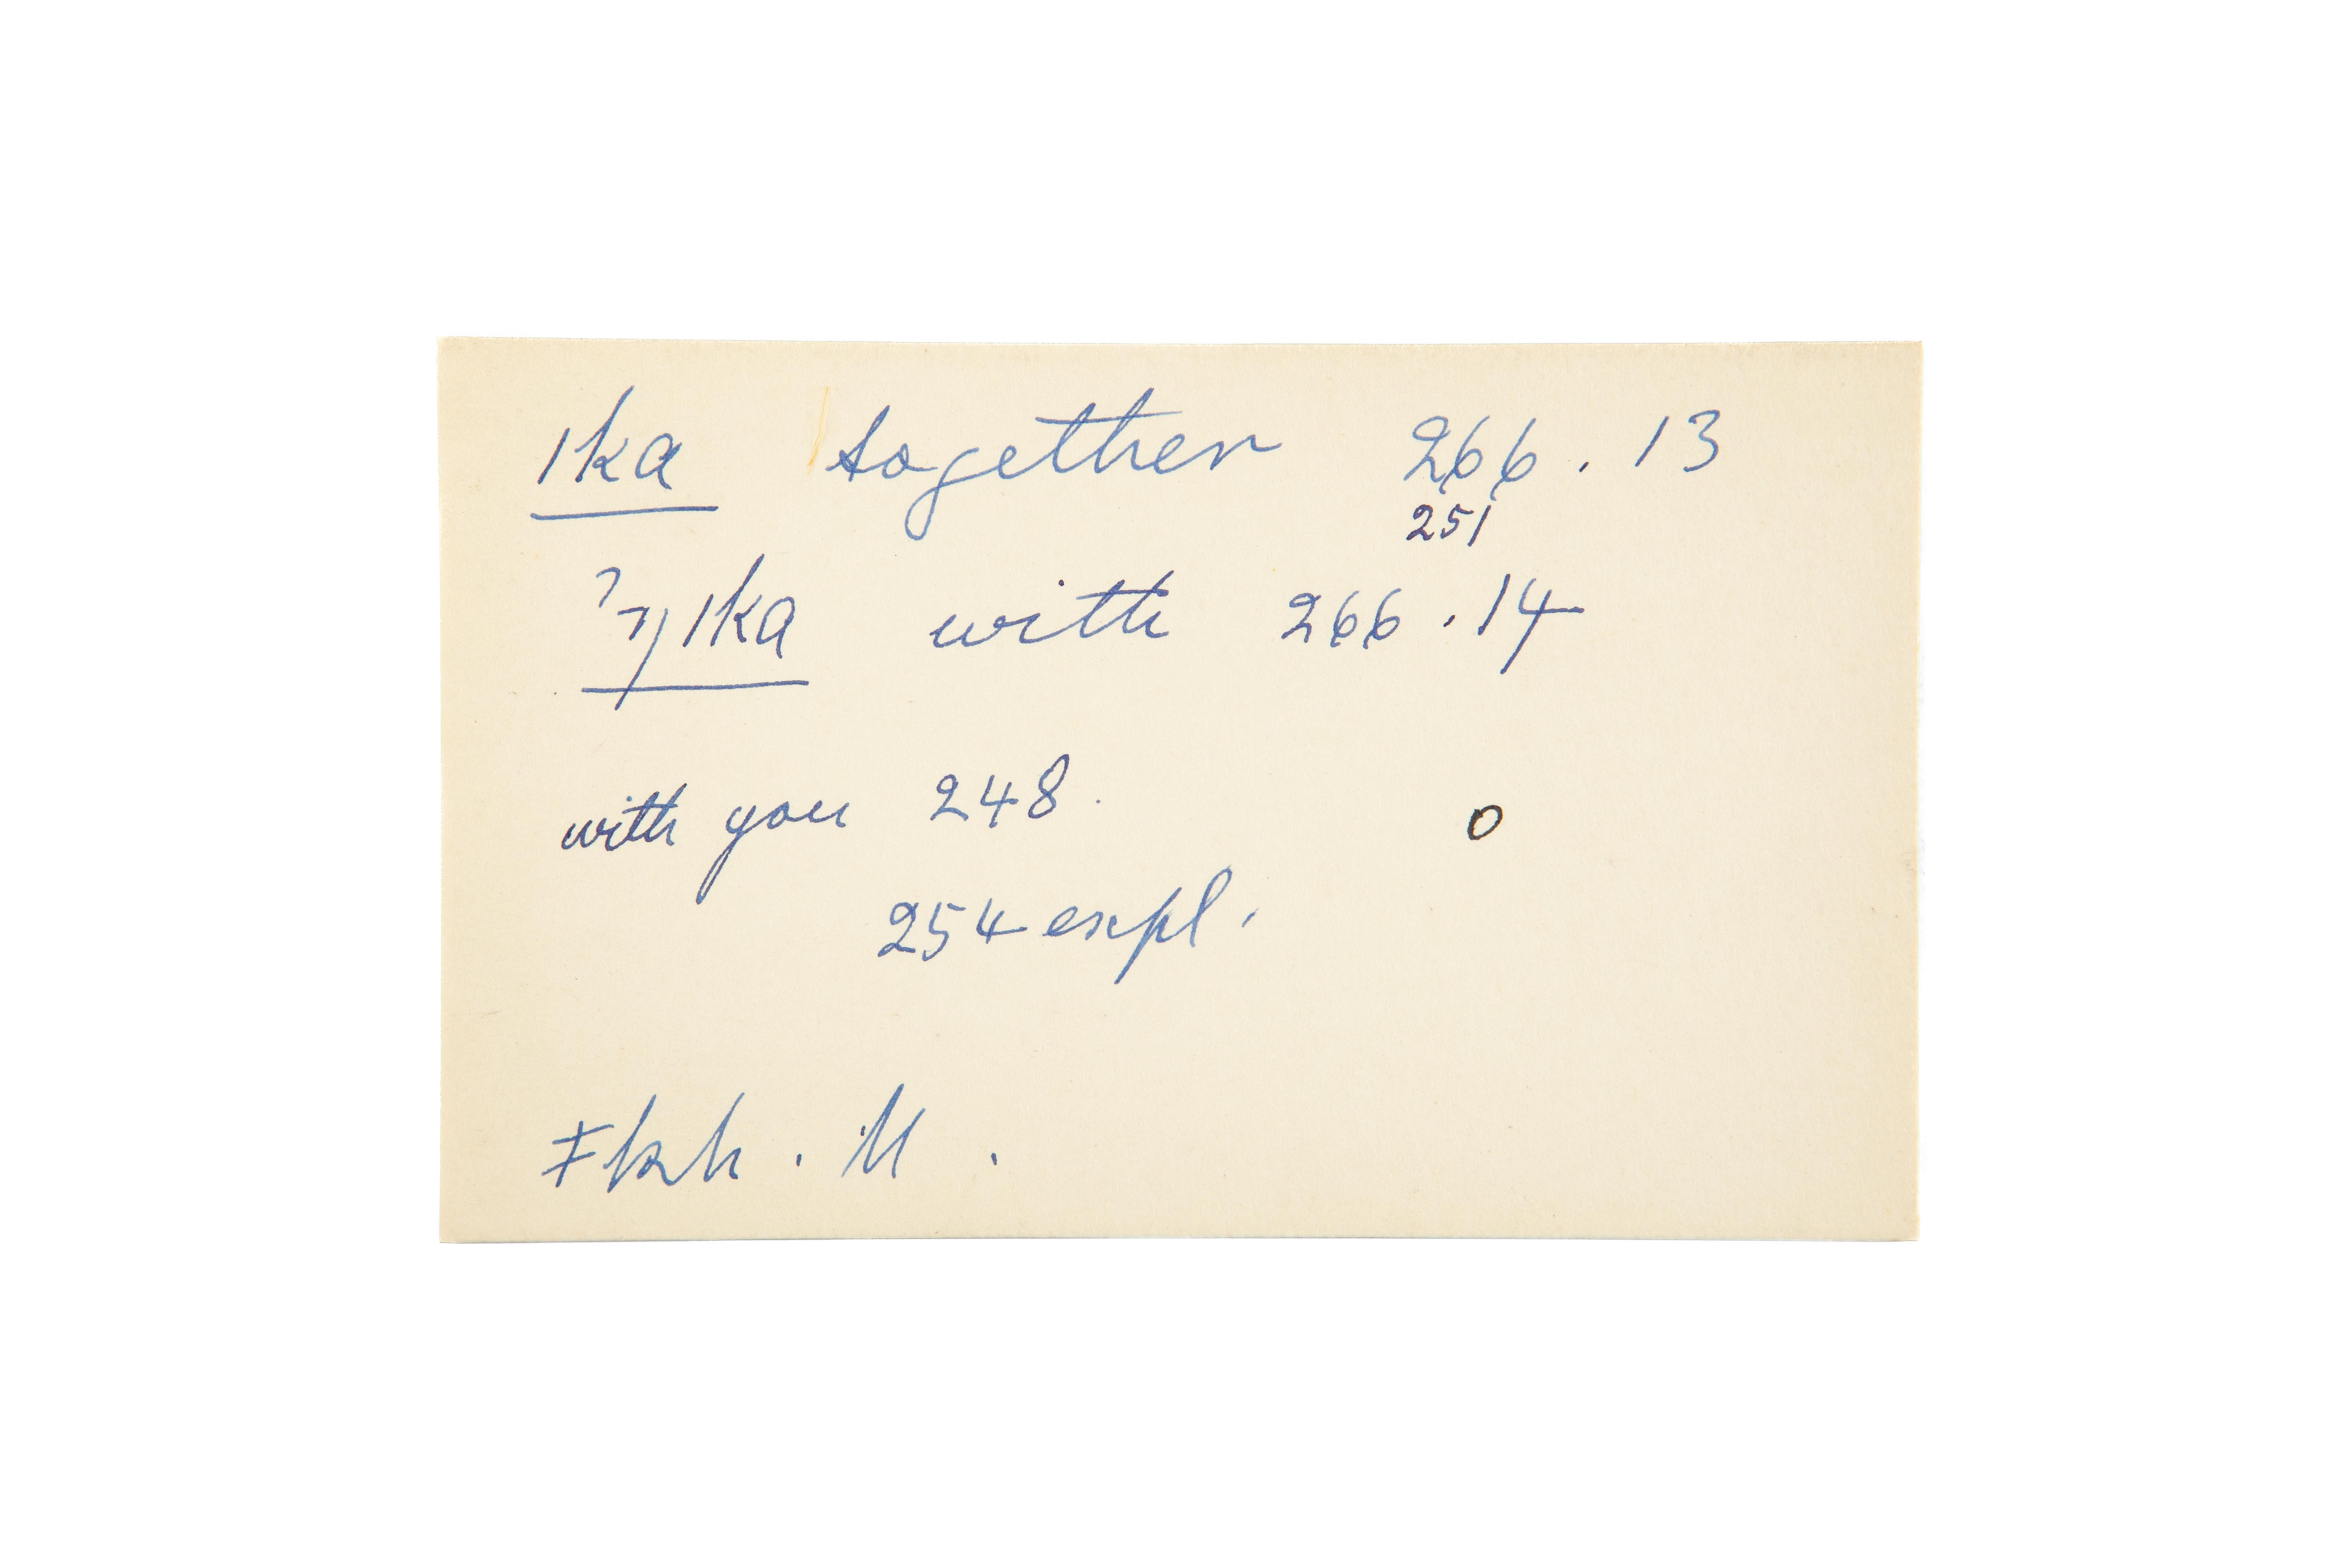 ǀka together 266.13
251
ˀ¬ŋǀka with 266.14
with you 248.
o
254 expl.
ǂkh. M.